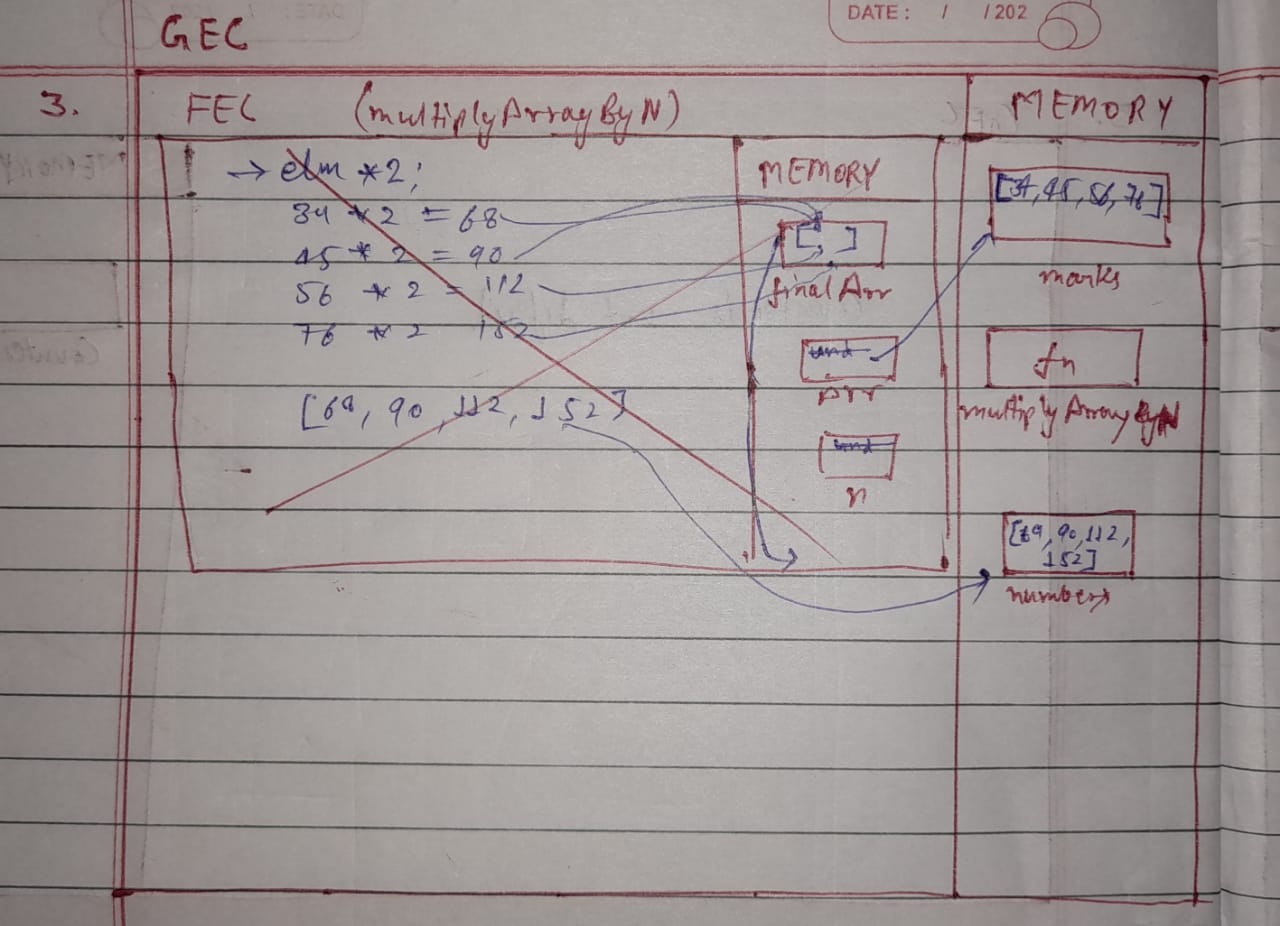 DATE : / / 202
GEC
3. FEC (multiplyArrayByN) MEMORY
→ elm * 2;
34 * 2 = 68
45 * 2 = 90
56 * 2 = 112
76 * 2 152
[68, 90, 112, 152]
MEMORY
[ ]
final Arr
und
arr
und
n
[34, 45, 56, 76]
marks
fn
multiply Array ByN
[68, 90, 112,
152]
numbers